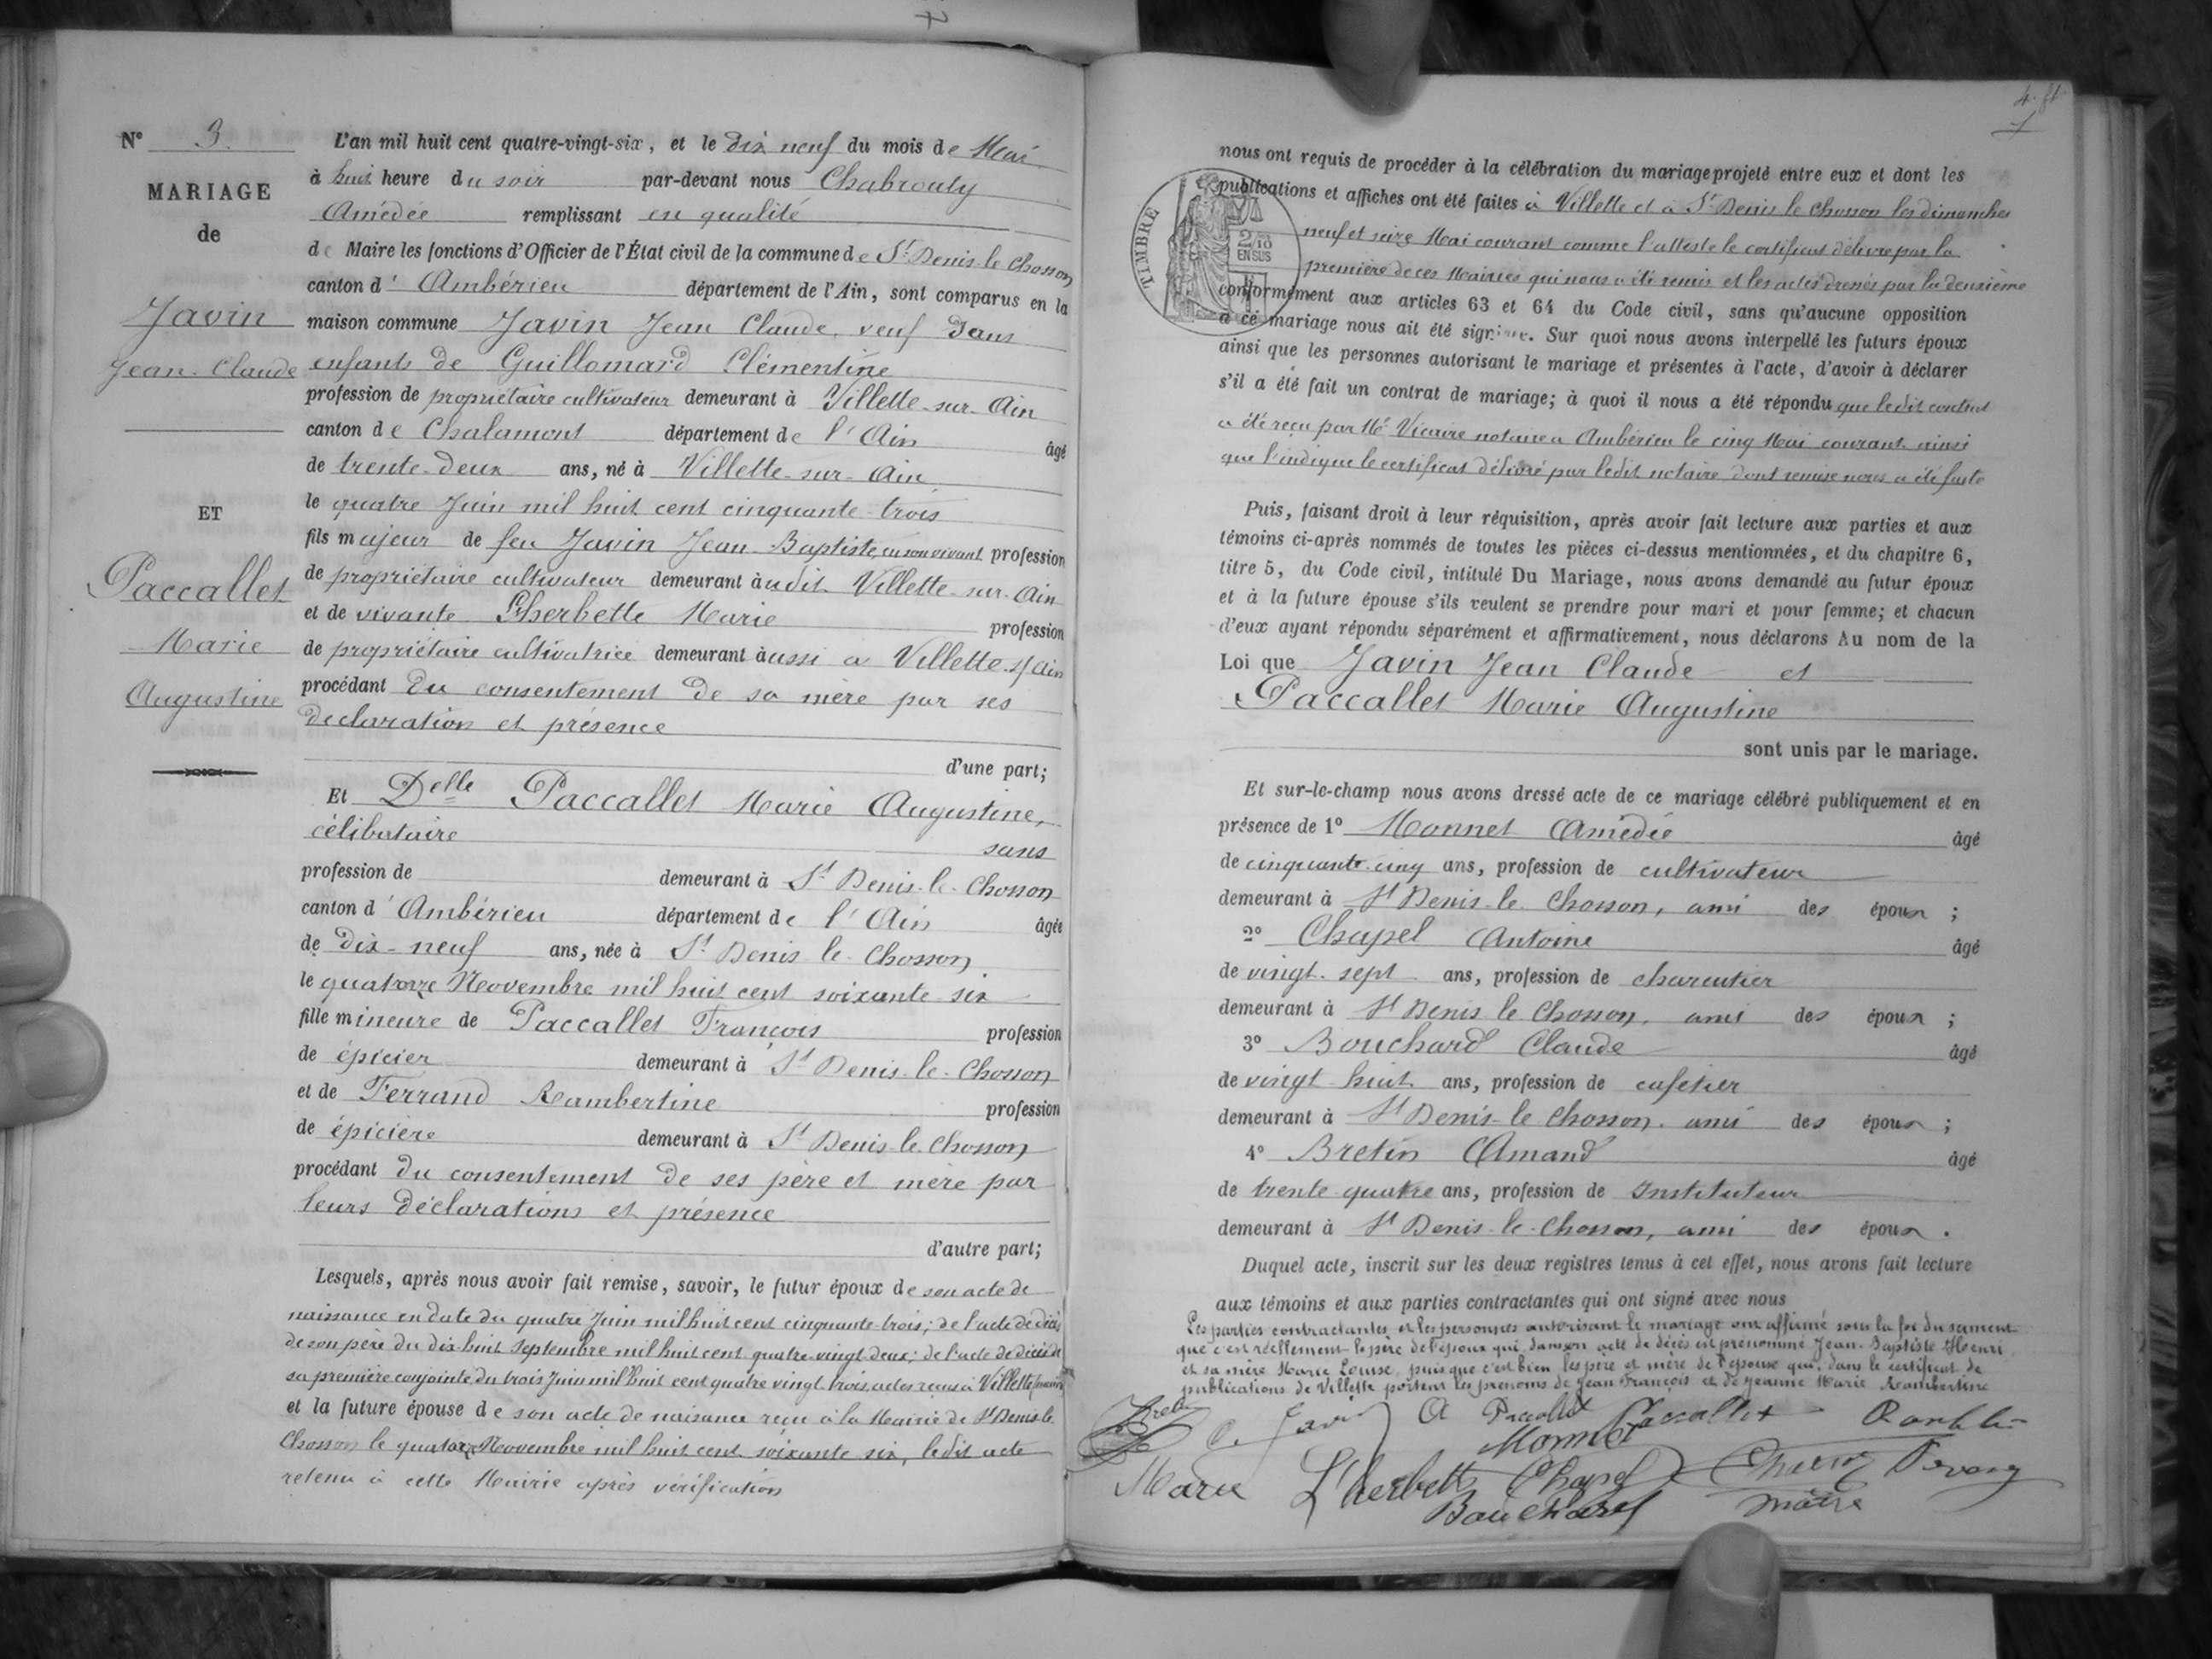 N° 3.
MARIAGE
de
Javin
Jean-Claude
ET
Paccallet
Marie
Augustine
L'an mil huit cent quatre-vingt-six, et le dix neuf du mois de Mai
à huit heure du soir par-devant nous Chabrouty
Amédée remplissant en qualité
de Maire les fonctions d'Officier de l'État civil de la commune de St Denis-le-Chosson
canton d'Ambérieu département de l'Ain, sont comparus en la
maison commune Javin Jean Claude, veuf sans
enfants de Guillomard Clémentine
profession de propriétaire cultivateur demeurant à Villette-sur-Ain
canton de Chalamont département de l'Ain âgé
de trente-deux ans, né à Villette-sur-Ain
le quatre Juin mil huit cent cinquante-trois
fils majeur de feu Javin Jean-Baptiste, en son vivant profession
de propriétaire cultivateur demeurant audit Villette-sur-Ain
et de vivante Lherbette Marie profession
de propriétaire cultivatrice demeurant aussi à Villette s/ Ain
procédant du consentement de sa mère par ses
déclaration et présence
d'une part;
Et Delle Paccallet Marie Augustine,
célibataire sans
profession de demeurant à St Denis-le-Chosson
canton d'Ambérieu département de l'Ain âgée
de dix-neuf ans, née à St Denis le-Chosson
le quatorze Novembre mil huit cent soixante six
fille mineure de Paccallet François profession
de épicier demeurant à St Denis-le-Chosson
et de Ferrand Rambertine profession
de épicière demeurant à St Denis-le-Chosson
procédant du consentement de ses père et mère par
leurs déclarations et présence
d'autre part;
Lesquels, après nous avoir fait remise, savoir, le futur époux de son acte de
naissance en date du quatre Juin mil huit cent cinquante-trois; de l'acte de décès
de son père du dix-huit Septembre mil huit cent quatre-vingt-deux; de l'acte de décès de
sa première conjointe du trois Juin mil huit cent quatre vingt-trois, actes reçus à Villette
et la future épouse de son acte de naissance reçu à la Mairie de St Denis-le-
Chosson le quatorze Novembre mil huit cent soixante six, ledit acte
retenu à cette Mairie après vérification
TIMBRE
2/10
EN SUS
nous ont requis de procéder à la célébration du mariage projeté entre eux et dont les
publications et affiches ont été faites à Villette et à St Denis le Chosson les dimanches
neuf et seize Mai courant comme l'atteste le certificat délivré par la
première de ces Mairies qui nous a été remis et les actes dressés par la deuxième
conformément aux articles 63 et 64 du Code civil, sans qu'aucune opposition
à ce mariage nous ait été signifiée. Sur quoi nous avons interpellé les futurs époux
ainsi que les personnes autorisant le mariage et présentes à l'acte, d'avoir à déclarer
s'il a été fait un contrat de mariage; à quoi il nous a été répondu que ledit contrat
a été reçu par Me Vicaire notaire à Ambérieu le cinq Mai courant ainsi
que l'indique le certificat délivré par ledit notaire dont remise nous a été faite
Puis, faisant droit à leur réquisition, après avoir fait lecture aux parties et aux
témoins ci-après nommés de toutes les pièces ci-dessus mentionnées, et du chapitre 6,
titre 5, du Code civil, intitulé Du Mariage, nous avons demandé au futur époux
et à la future épouse s'ils veulent se prendre pour mari et pour femme; et chacun
d'eux ayant répondu séparément et affirmativement, nous déclarons Au nom de la
Loi que Javin Jean Claude et
Paccallet Marie Augustine
sont unis par le mariage.
Et sur-le-champ nous avons dressé acte de ce mariage célébré publiquement et en
présence de 1° Monnet Amédée âgé
de cinquante-cinq ans, profession de cultivateur
demeurant à St Denis-le-Chosson, ami des époux ;
2° Chapel Antoine âgé
de vingt-sept ans, profession de charcutier
demeurant à St Denis le Chosson, ami des époux ;
3° Bouchard Claude âgé
de vingt huit ans, profession de cafetier
demeurant à St Denis-le Chosson, ami des époux ;
4° Bretin Amand âgé
de trente quatre ans, profession de Instituteur
demeurant à St Denis-le-Chosson, ami des époux .
Duquel acte, inscrit sur les deux registres tenus à cet effet, nous avons fait lecture
aux témoins et aux parties contractantes qui ont signé avec nous
Les parties contractantes et les personnes autorisant le mariage ont affirmé sous la foi du serment
que c'est réellement le père de l'époux qui, dans son acte de décès est prénommé Jean-Baptiste Henri
et sa mère Marie Louise, puis que c'est bien les père et mère de l'épouse qui, dans le certificat de
publications de Villette portent les prénoms de Jean François et de Jeanne Marie Rambertine
Javin A Paccallet Paccallet
Monnet
Marie L'herbette Chapel
Bouchard maire